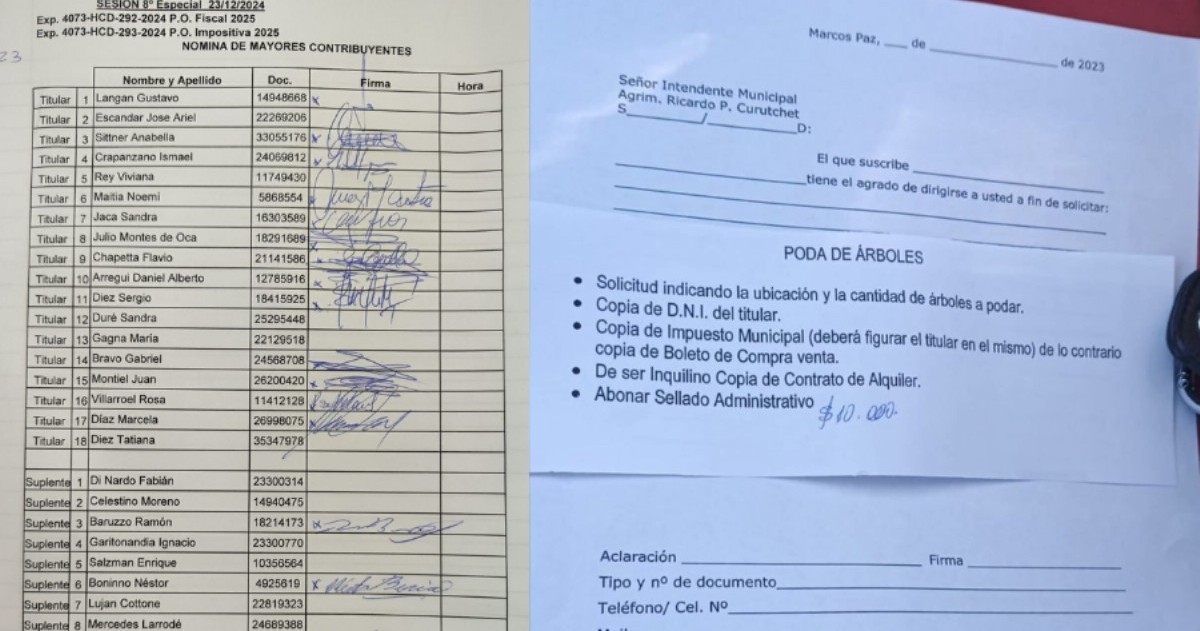 SESIÓN 8° Especial 23/12/2024
Exp. 4073-HCD-292-2024 P.O. Fiscal 2025
Exp. 4073-HCD-293-2024 P.O. Impositiva 2025
NOMINA DE MAYORES CONTRIBUYENTES
23
Nombre y Apellido Doc. Firma Hora
Titular 1 Langan Gustavo 14948668 x
Titular 2 Escandar Jose Ariel 22269206
Titular 3 Sittner Anabella 33055176 x
Titular 4 Crapanzano Ismael 24069812 x
Titular 5 Rey Viviana 11749430
Titular 6 Maitia Noemi 5868554
Titular 7 Jaca Sandra 16303589
Titular 8 Julio Montes de Oca 18291689
Titular 9 Chapetta Flavio 21141586 x
Titular 10 Arregui Daniel Alberto 12785916 x
Titular 11 Diez Sergio 18415925 x
Titular 12 Duré Sandra 25295448
Titular 13 Gagna Maria 22129518
Titular 14 Bravo Gabriel 24568708
Titular 15 Montiel Juan 26200420 x
Titular 16 Villarroel Rosa 11412128
Titular 17 Díaz Marcela 26998075 x
Titular 18 Diez Tatiana 35347978
Suplente 1 Di Nardo Fabián 23300314
Suplente 2 Celestino Moreno 14940475
Suplente 3 Baruzzo Ramón 18214173 x
Suplente 4 Garitonandia Ignacio 23300770
Suplente 5 Salzman Enrique 10356564
Suplente 6 Boninno Néstor 4925619 x
Suplente 7 Lujan Cottone 22819323
Suplente 8 Mercedes Larrodé 24689388
Marcos Paz, ___ de ___ de 2023
Señor Intendente Municipal
Agrim. Ricardo P. Curutchet
S___/___D:
El que suscribe
tiene el agrado de dirigirse a usted a fin de solicitar:
PODA DE ÁRBOLES
• Solicitud indicando la ubicación y la cantidad de árboles a podar.
• Copia de D.N.I. del titular.
• Copia de Impuesto Municipal (deberá figurar el titular en el mismo) de lo contrario
copia de Boleto de Compra venta.
• De ser Inquilino Copia de Contrato de Alquiler.
• Abonar Sellado Administrativo $10.000.
Aclaración ___ Firma ___
Tipo y nº de documento
Teléfono/ Cel. Nº